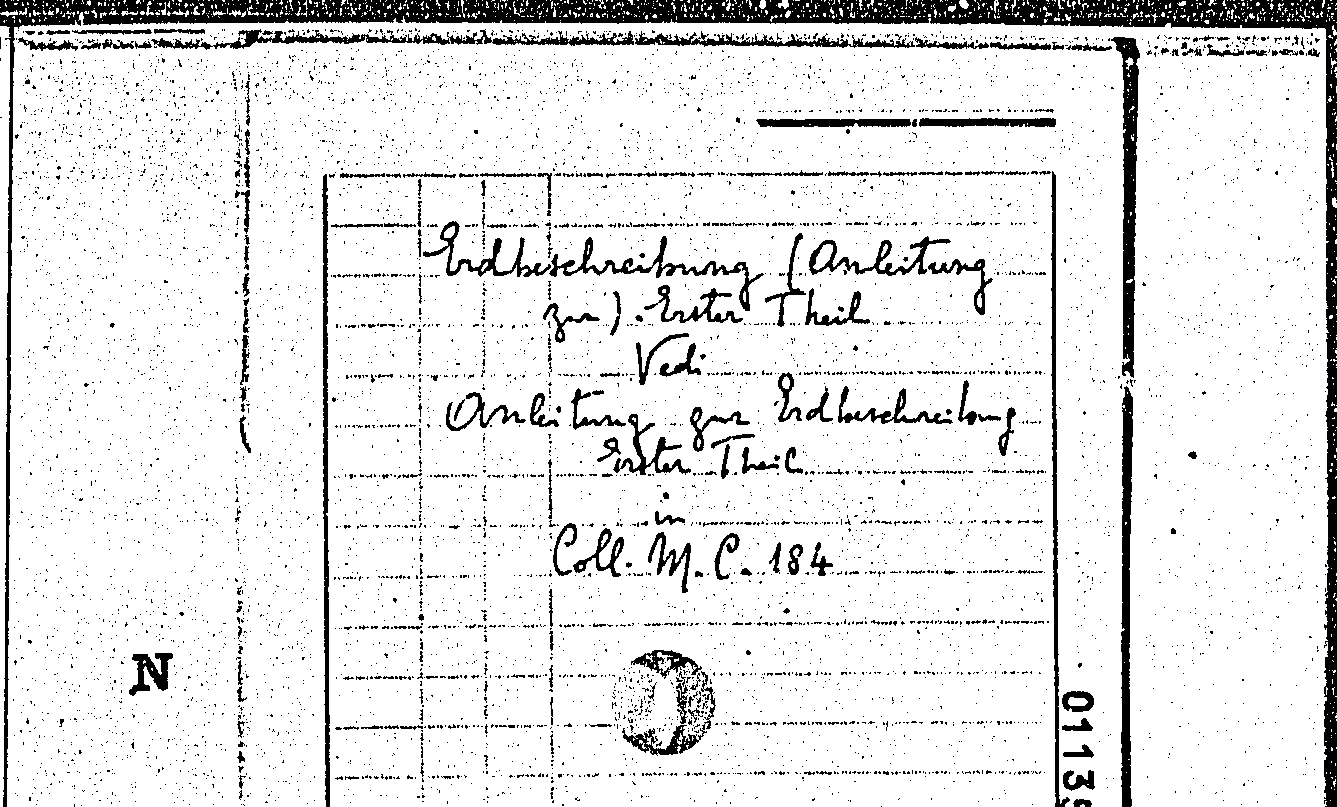 Erdbeschreibung (Anleitung
zur). Erster Theil
Vedi
Anleitung zur Erdbeschreibung
Erster Theil
in
Coll. M. C. 184
N